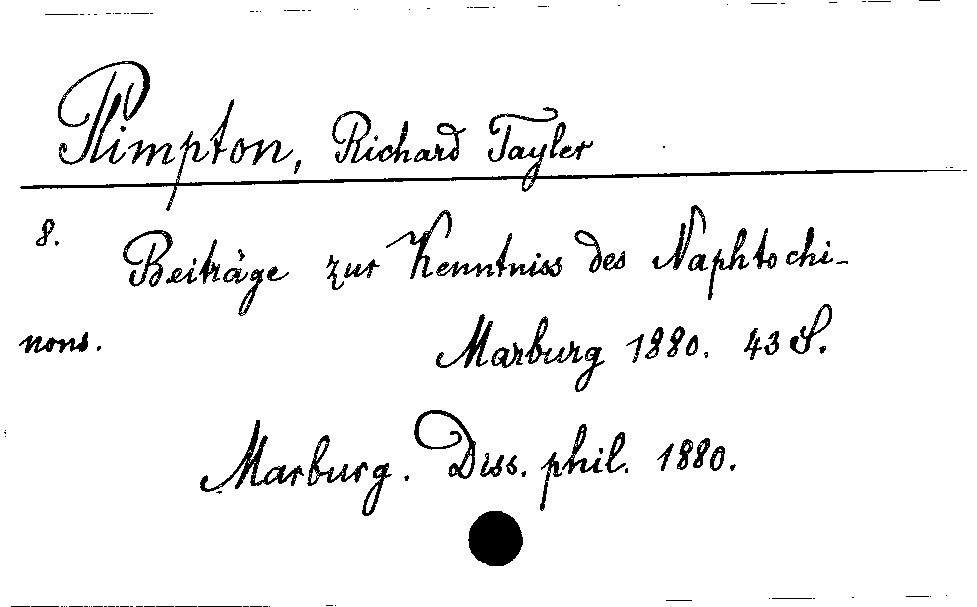 Plimpton, Richard Tayler
8.
Beiträge zur Kenntniss des Naphtochi-
nons. Marburg 1880. 43 S.
Marburg. Diss. phil. 1880.